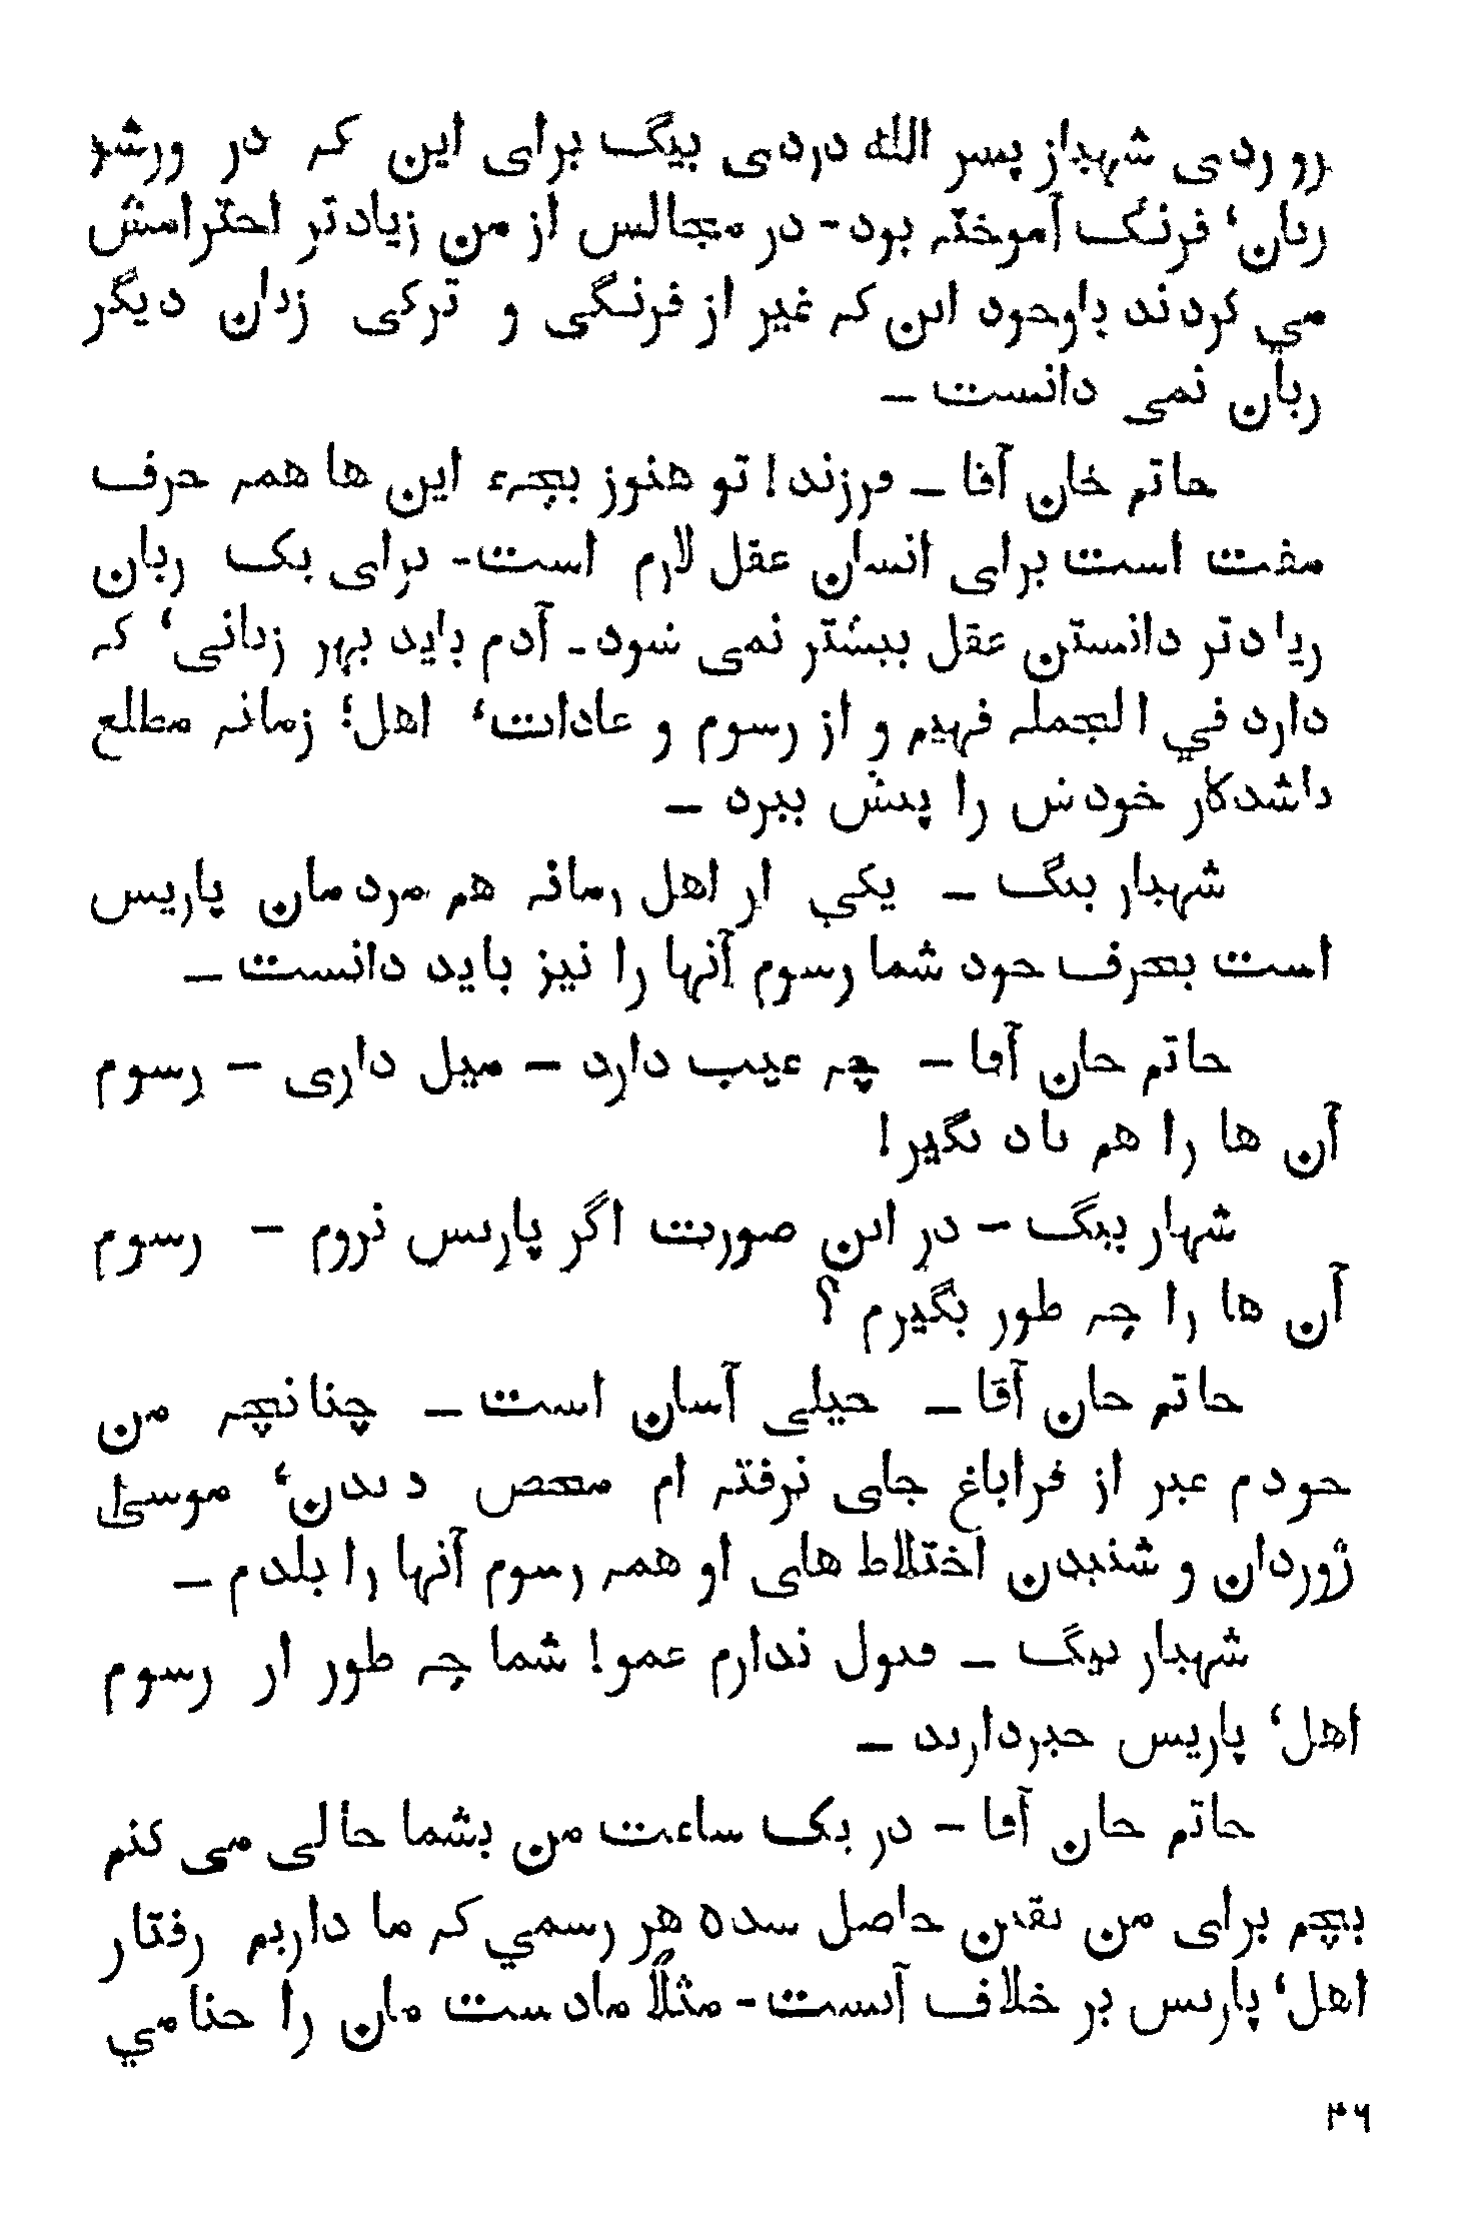 رو ردی شهباز پسر الله دردی بیگ برای این که در ورشو
زبان‘ فرنگ آموخته بود - در مجالس از من زیادتر احترامش
می کردند باوجود این که غیر از فرنگی و ترکی زبان دیگر
زبان نمی دانست —
حاتم خان آقا — فرزند! تو هنوز بچهء این ها همه حرف
مفت است برای انسان عقل لازم است - برای یک زبان
زیادتر دانستن عقل بیشتر نمی شود - آدم باید بهر زبانی‘ که
دارد في الجمله فهیم و از رسوم و عادات‘ اهل؛ زمانه مطلع
باشد کار خودش را پیش ببرد —
شهباز بیگ — یکي از اهل زمانه هم مردمان پاریس
است بحرف خود شما رسوم آنها را نیز باید دانست —
حاتم خان آقا — چه عیب دارد — میل داری — رسوم
آن ها را هم یاد بگیر!
شهباز بیگ — در این صورت اگر پاریس نروم — رسوم
آن ها را چه طور بگیرم ؟
حاتم خان آقا — خیلی آسان است — چنانچه من
خودم غیر از قراباغ جای نرفته ام محض دیدن‘ موسیٰ
ژوردان و شنیدن اختلاط های او همه رسوم آنها را بلدم —
شهباز بیگ — قبول ندارم عمو! شما چه طور از رسوم
اهل‘ پاریس خبردارید —
حاتم خان آقا — در یک ساعت من بشما حالی می کنم
بچم برای من یقین حاصل شده هر رسمي که ما داریم رفتار
اهل‘ پاریس بر خلاف آنست - مثلاً ما دست مان را حنا مي
۳۶